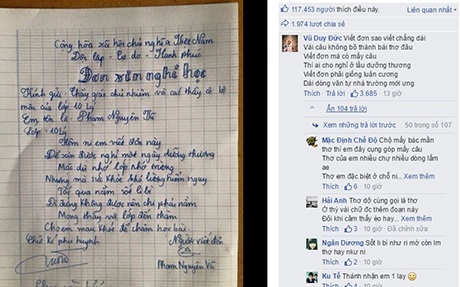 Cộng hòa xã hội chủ nghĩa Việt Nam
Độc lập - Tự do - Hạnh phúc
Đơn xin nghỉ học
Kính gửi: Thầy giáo chủ nhiệm và các thầy cô bộ
môn của lớp 10 Lý
Em tên là: Phạm Nguyên Vũ
Lớp: 10 Lý
Hôm ni em viết đơn này
Để xin được nghỉ một ngày dưỡng thương
Mặc dù nhớ lớp nhớ trường
Nhưng mà sức khỏe khó lường hiểm nguy
Tối qua nằm sốt li bì
Đi đứng không được nên chi phải nằm
Mong thầy và lớp đến thăm
Cho em mau khỏe để chăm học bài.
Chữ kí phụ huynh
Người viết đơn
Vũ
Phạm Nguyên Vũ
117.453 người thích điều này.
Liên quan nhất
1.974 lượt chia sẻ
Vũ Duy Đức Viết đơn sao viết chẳng dài
Vài câu không bõ thành bài thơ đâu
Viết đơn mà có mấy câu
Thì ai cho nghỉ ở lâu dưỡng thương
Viết đơn phải giống luận cương
Dài dòng văn tự nhà trường mới ưng
Thích · Trả lời · 3.685 · 13 giờ
Ẩn 104 trả lời
Xem những trả lời trước
50 trong số 107
Mặc Định Chế Độ Chộ mấy bác mần
thơ thì em đây cung góp mấy câu
Thơ của em nhiều chự nhiều dòng lắm
ae
Thơ em đặc biệt ở chỗ ni... Xem thêm
Thích · 6 · 10 giờ
Hải Anh Thơ dở cùng gọi là thơ
Ở thý vái chữ đc thêm đoạn này
Đổi khi cảm thấy éo hay/... Xem thêm
Thích · 4 · 10 giờ
Ngân Dương Sốt li bì như ri mờ còn lm
thơ hay như rkeu
Thích · 2 · 10 giờ
Ku Tẻ Thánh nhận em 1 lạy
Thích · 1 · 10 giờ